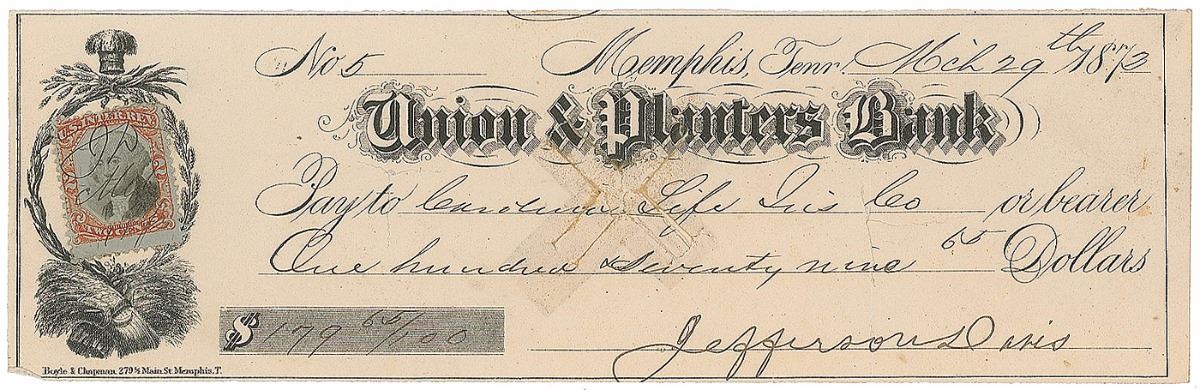 No 5 Memphis, Tenn. Mch 29th 1873
Union & Planters Bank
Pay to Carolina Life Ins Co or bearer
One hundred & seventy nine 65 Dollars
$ 179 65/100
Jefferson Davis
Boyle & Chapman, 279½ Main St. Memphis, T.